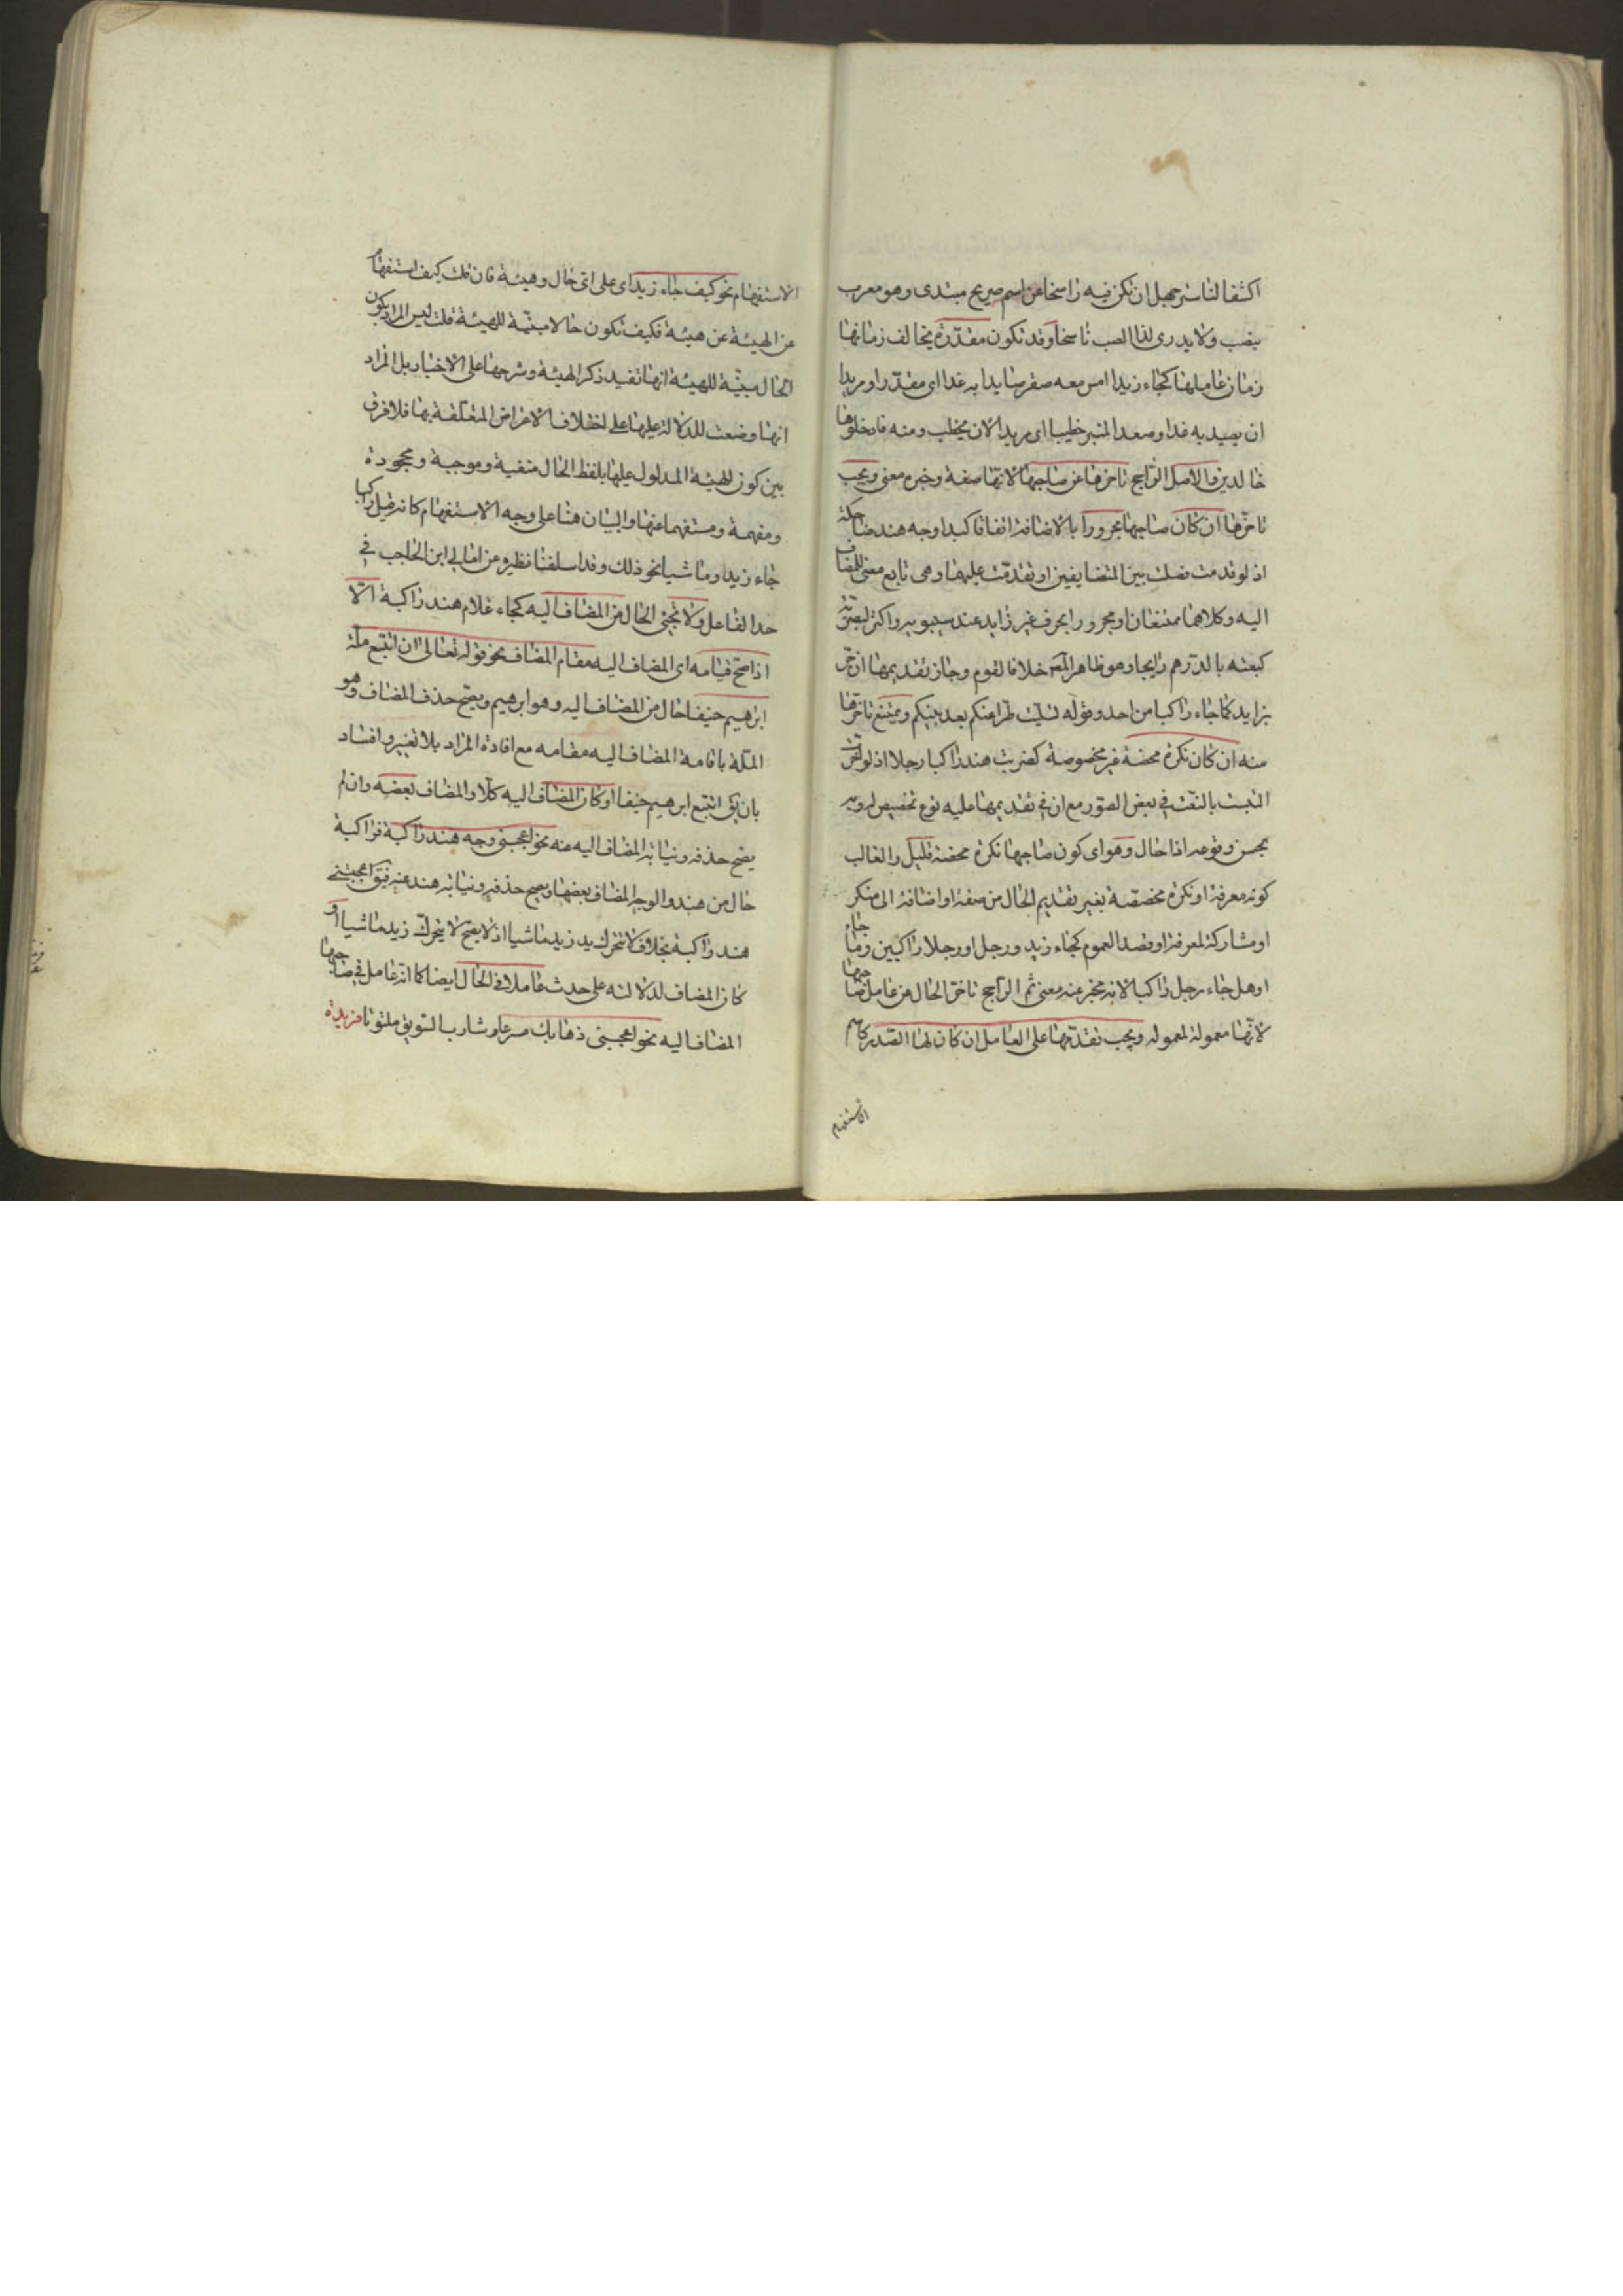 اكشفا لناسر جهبل ان تكن فيه راسخا عن اسم صريح مبتدى وهو معرب
بنصب ولا يدرى لذا النصب ناسخا وقد تكون مقدّرة يخالف زمانها
زمان عاملها كجاء زيد امس معه صقر صايدا به غدا اى مقدّرا ومريدا
ان يصيد به غدا وصعد المنبر خطيبا اى مريدا لان يخطب ومنه فادخلوها
خالدين والاصل الراجح تاخرها عن صاحبها لانها صفة وخبره معنى ويجب
تاخرها ان كان صاحبها مجرورا بالاضافة اتفاقا كبدا وجه هند ضاحكة
اذ لو قدمت فصلت بين المتضايفين او تقدمت عليهما وهى تابع معنى للمضاف
اليه وكلاهما ممتنعان او مجرورا بحرف غير زايد عند سيبويه واكثر البصرية
كبعته بالدرهم رايجا وهو ظاهر المص خلافا لقوم وجاز تقديمها ان جرّ
بزايد كما جاء راكبا من احد وقوله تسليت طرا عنكم بعد بينكم ويمتنع تاخرها
منه ان كان نكرة محضة غير مخصوصة كضربت هند راكبا رجلا اذ لو اخرت
التبست بالنعت فى بعض الصور مع ان فى تقديمها عليه نوع تخصيص له وبه
يحسن وقوعه اذا حال وهو اى كون صاحبها نكرة محضة قليل والغالب
كونه معرفة او نكرة مخصصة بغير تقديم الحال من صفة او اضافة الى منكر
او مشاركة لمعرفة او قصد العموم كجاء زيد ورجل او رجلا راكبين وما جاء
او هل جاء رجل راكبا لانه مخبر عنه معنى ثم الراجح تاخر الحال عن عامل صاحبها
لانها معمولة لمعموله ويجب تقدمها على العامل ان كان لها الصدر كاسم
الاستفهام
الاستفهام نحو كيف جاء زيد اى على اى حال وهيئة فان قلت كيف استفهام
عن الهيئة عن هيئة فكيف تكون حالا مبينة للهيئة قلت ليس المراد بكون
الحال مبيّنة للهيئة انها تفيد ذكر الهيئة وشرحها على الاخبار بل المراد
انها وضعت للدلالة عليها على اختلاف الاغراض المتعلقة بها فلا فرق
بين كون الهيئة المدلول عليها بلفظ الحال منفية وموجبة ومجحودة
ومفهمة ومستفهما عنها والبيان هنا على وجه الاستفهام كانه قيل راكبا
جاء زيد او ماشيا نحو ذلك وقد اسلفنا نظيره عن امالى ابن الحاجب فى
حد الفاعل ولا تجئ الحال من المضاف اليه كجاء غلام هند راكبة الّا
اذا صحّ قيامه اى المضاف اليه مقام المضاف نحو قوله تعالى ان اتبع ملّة
ابرهيم حنيفا حال من المضاف اليه وهو ابرهيم ويصح حذف المضاف وهو
الملّة باقامة المضاف اليه مقامه مع افادة المراد بلا تغيير وافساد
بان يق اتبع ابرهيم حنيفا او كان المضاف اليه كلّا والمضاف بعضه وان لم
يصح حذفه ونيابة المضاف اليه عنه نحو اعجبنى وجه هند راكبة فراكبة
حال من هند والوجه المضاف بعضها ويصح حذفه ونيابة هند عنه فيق اعجبتنى
هند راكبة بخلاف لا تتحرك يد زيد ماشيا اذ لا يصح لا يتحرك زيد ماشيا او
كان المضاف لدلالته على حدث عاملا فى الحال ايضا كما انه عامل فى صاحبها
المضاف اليه نحو اعجبنى ذهابك مسرعا وشارب السويق ملتوتا فزيدة